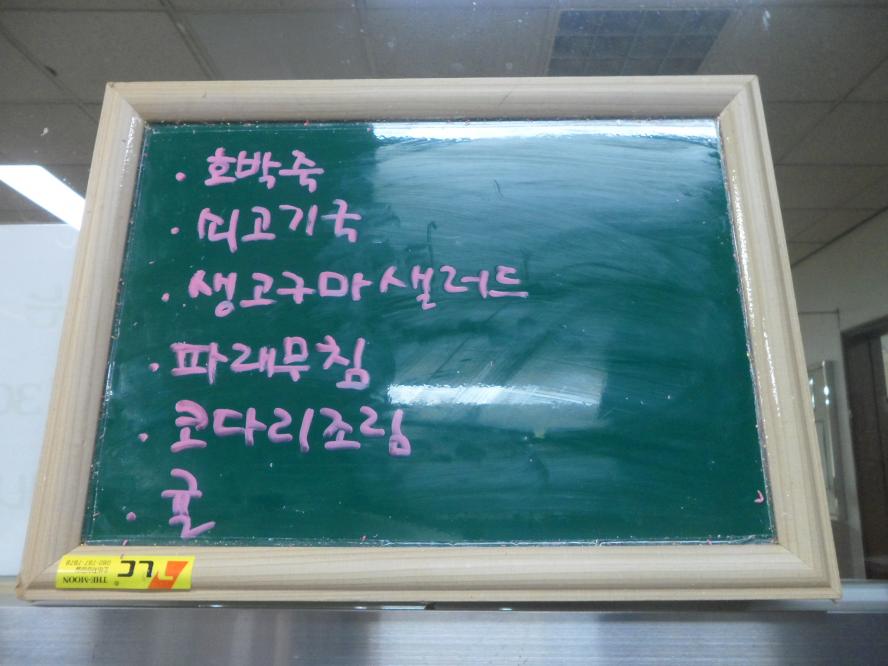 · 호박죽
· 쇠고기국
· 생고구마샐러드
· 파래무침
· 코다리조림
· 귤
THE-MOON